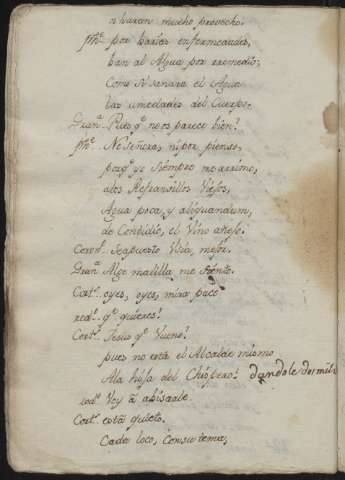 n haran mucho provecho.
Phe. por barias enfermedades,
ban al Agua por rremedio;
Como si sanara el Agua
las umedades del Cuerpo.
Juana. Pues qe. no os parece bien?
Phe. No Señora, ni por pienso,
porqe. yo siempre me arrimo,
a los Refransillos Viejos,
Agua poca y
de Condidio, el Vino añejo.
se a puesto Usia, mejor.
Juana. Algo malilla me siento.
Cort. oyes, oyes, mira Paco
qe. quieres?
Cort. Jesus qe. Vueno!
pues no está el Alcalde mismo
A la hija del Chispero! dandole dos mil
Voy á abisarle.
Cort. está quieto.
Cada loco, con su tema,